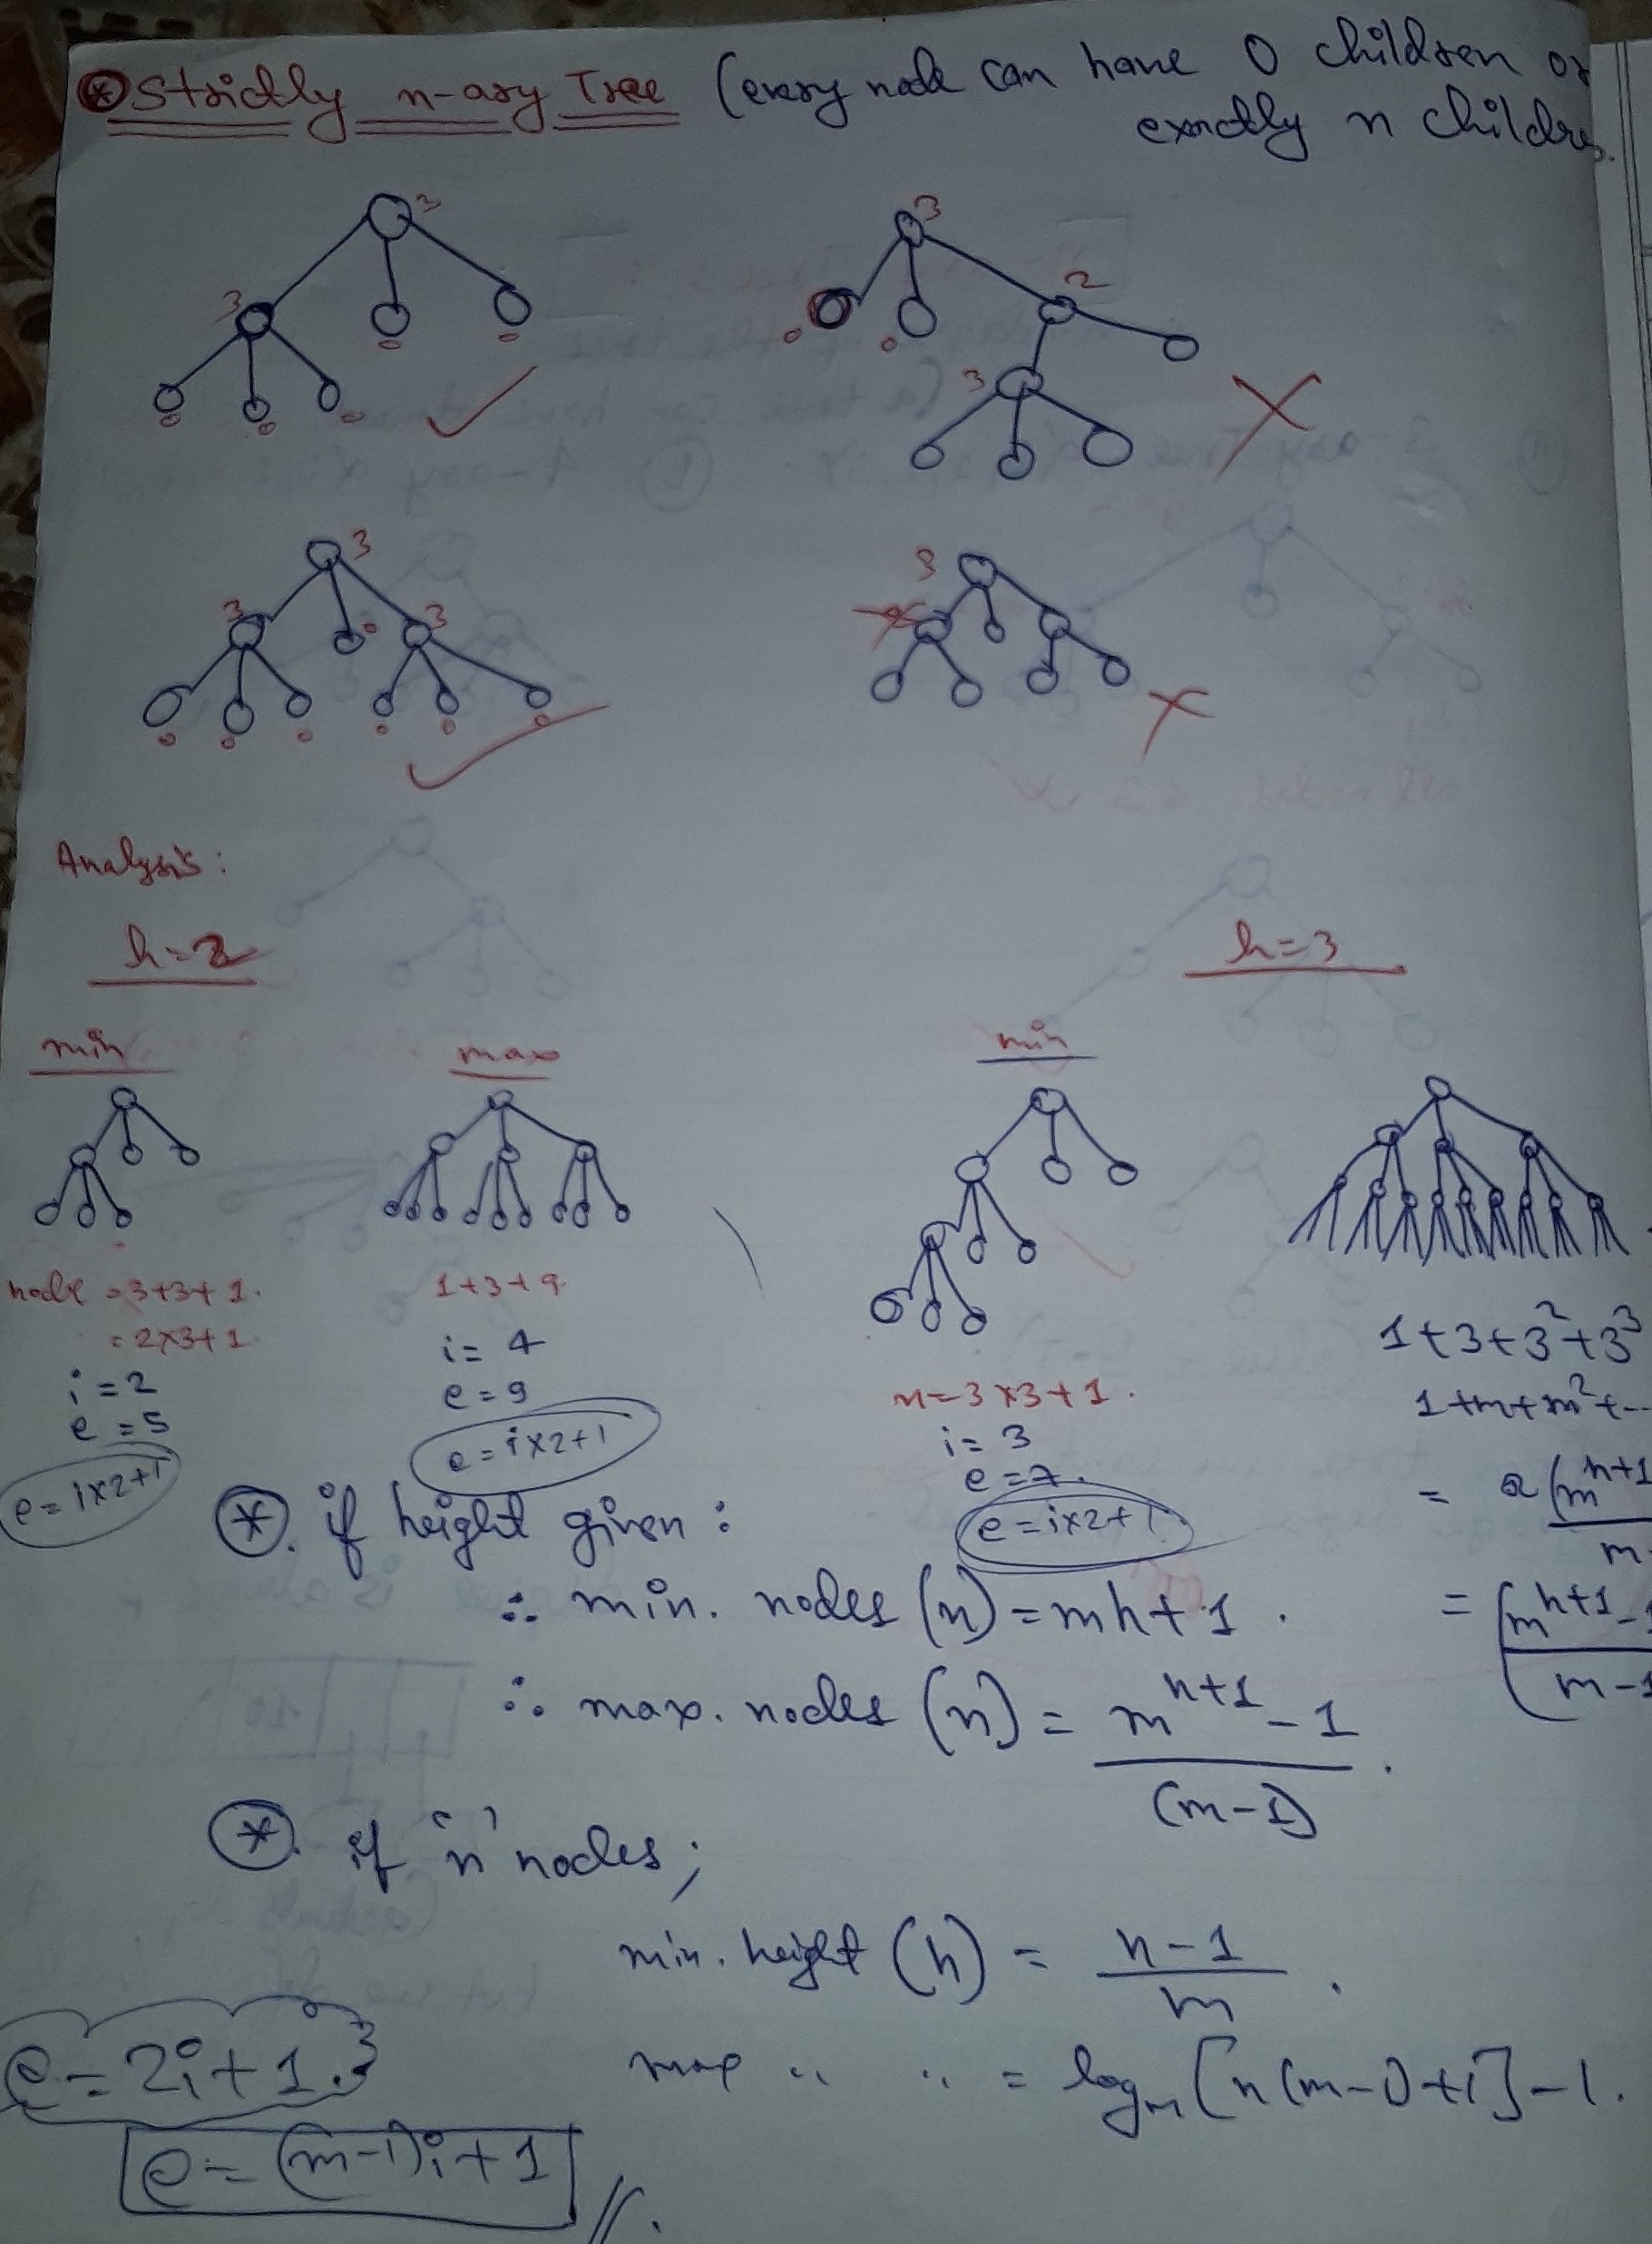 ⊛ Strictly n-ary Tree (every node can have 0 children or
exactly n children.
3
3
0 0
0 0 0
✓
3
2
0 0
3
✗
3
3 0 3
0 0 0 0 0 0
✓
3
✗
Analysis:
h=2
min
max
node = 3+3+1.
= 2×3+1.
i = 2
e = 5
e = i×2+1
1+3+9
i = 4
e = 9
e = i×2+1
h=3
min
n = 3×3+1.
i = 3
e = 7.
e = i×2+1
1+3+3²+3³
1+m+m²+--
= a(m^h+1
m-
= (m^h+1 -1
m-1
⊛. if height given:
∴ min. nodes (n) = mh+1.
∴ max. nodes (n) = m^h+1 - 1
(m-1)
.
⊛. if 'n' nodes;
min. height (h) = n-1
m
.
max " " = logm[n(m-1)+1]-1.
e = 2i+1.
e = (m-1)i+1 //.